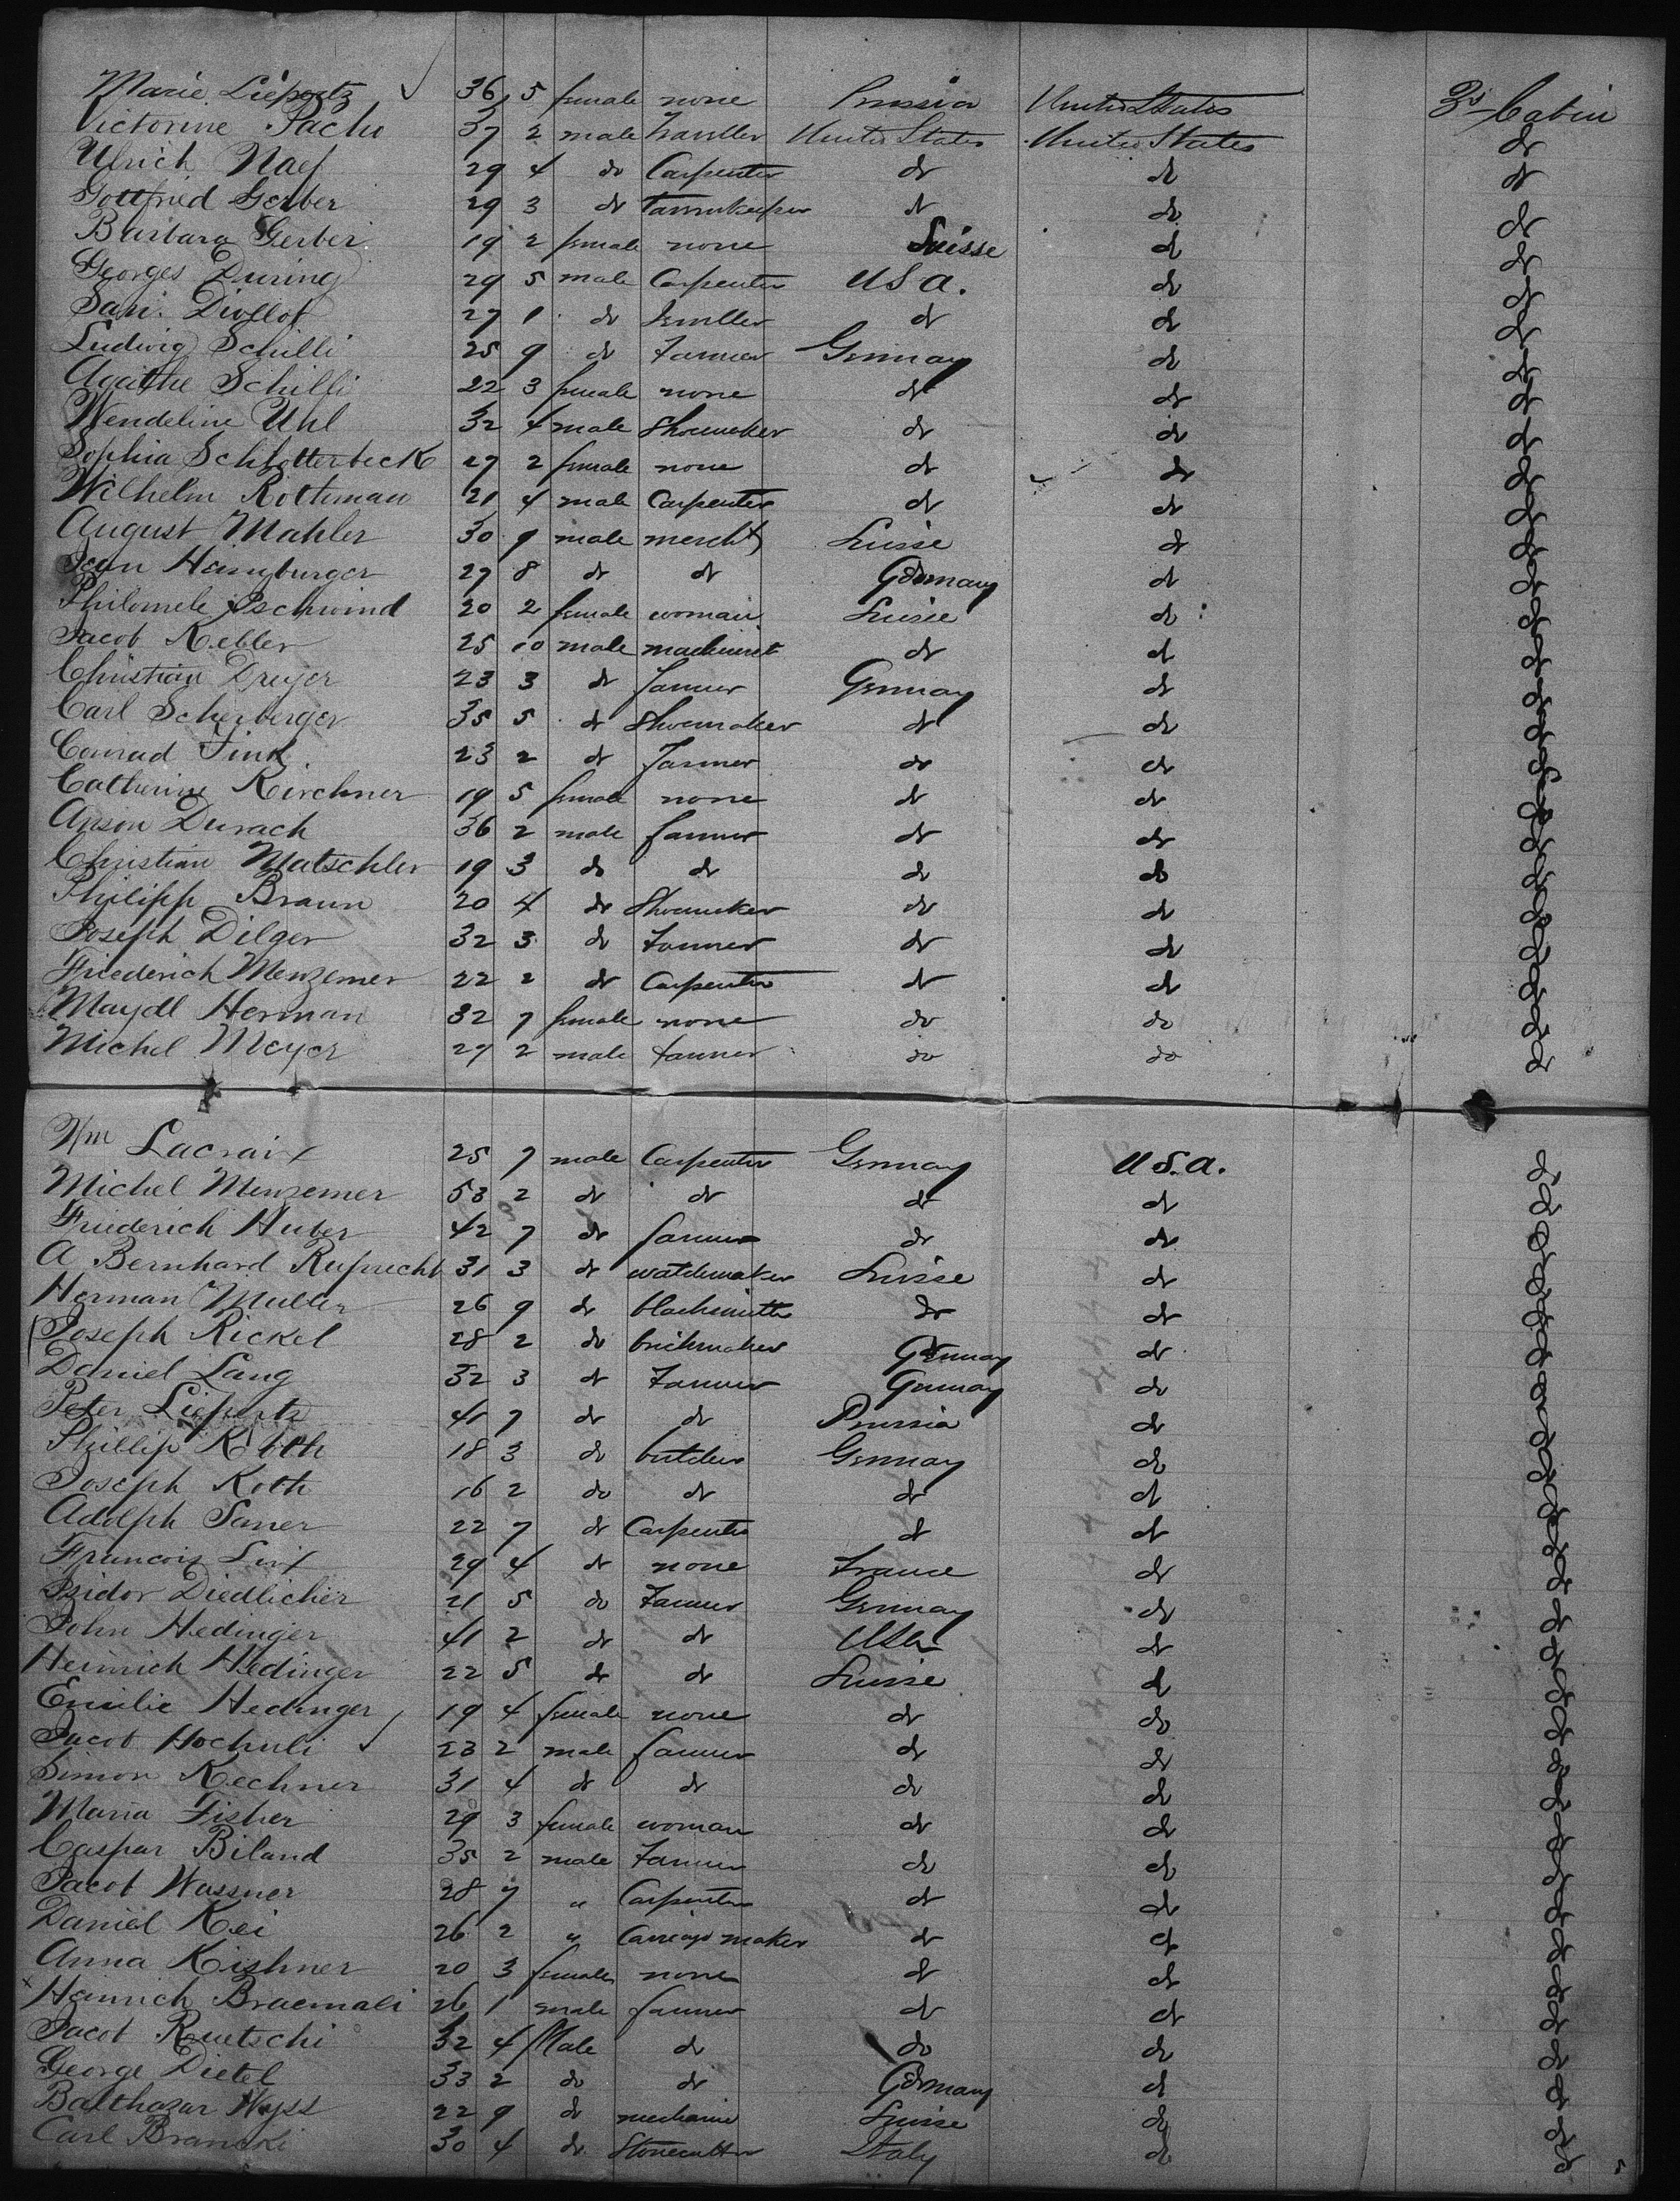 Marie Liepertz 36 5 female none Prussia United States 3d Cabin
Victorine Pache 37 2 male Traveller United States United States do
Ulrich Naef 29 4 do Carpenter do do do
Gottfried Gerber 29 3 do do do do
Barbara Gerber 19 2 female none Suisse do do
Georges During 29 5 male Carpenter U S A. do do
27 1 do do do do
Ludwig Schilli 25 9 do Farmer Germany do do
Agathe Schilli 22 3 female none do do do
Wendeline Uhl 32 4 male Shoemaker do do do
Sophia Schlotterbeck 27 2 female none do do do
Wilhelm Rothman 21 4 male Carpenter do do do
August Mahler 30 9 male mercht Suisse do do
Jean Hamburger 27 8 do do Germany do do
Philomele Pschwind 20 2 female woman Suisse do do
Jacob Kebler 25 10 male machinist do do do
Christian Dreyer 23 3 do Farmer Germany do do
Carl Scherberger 35 5 do Shoemaker do do do
Conrad Fink 23 2 do Farmer do do do
Catherine Kirchner 19 5 female none do do do
Durach 36 2 male farmer do do do
Christian Mutschler 19 3 do do do do do
Philipp Braun 20 4 do Shoemaker do do do
Joseph Dilger 32 3 do Farmer do do do
Friederich Menzemer 22 2 do Carpenter do do do
Maydl Herman 32 7 female none do do do
Michel Meyer 27 2 male farmer do do do
Wm Lacraix 25 7 male Carpenter Germany U S. A. do
Michel Menzemer 53 2 do do do do do
Friederich Huber 42 7 do farmer do do do
A Bernhard Ruprecht 31 3 do watchmaker Suisse do do
Herman Muller 26 9 do blacksmith do do do
Joseph Rickel 28 2 do brickmaker Germany do do
Daniel Lang 32 3 do Farmer Germany do do
Peter Liepertz 41 7 do do Prussia do do
Phillip Roth 18 3 do butcher Germany do do
Joseph Roth 16 2 do do do do do
Adolph Saner 22 7 do Carpenter do do do
Francois 29 4 do none France do do
Izidor Diedlicher 21 5 do Farmer Germany do do
John Hedinger 41 2 do do USA do do
Heinrich Hedinger 22 5 do do Suisse do do
Emilie Hedinger 19 4 female none do do do
Jacob Hochuli 23 2 male farmer do do do
Simon Kechner 31 4 do do do do do
Maria Fisher 29 3 female woman do do do
Caspar Biland 35 2 male Farmer do do do
Jacob Wassner 28 7 " Carpenter do do do
Daniel Kei 26 2 " Carriage maker do do do
Anna Kishner 20 3 female none do do do
x Heinrich Braemali 26 1 male farmer do do do
Jacob Ruetschi 32 4 Male do do do do
George Dietel 33 2 do do Germany do do
Balthazar Wyss 22 9 do mechanic Suisse do do
Carl Brancki 30 4 do Stonecutter Italy do do